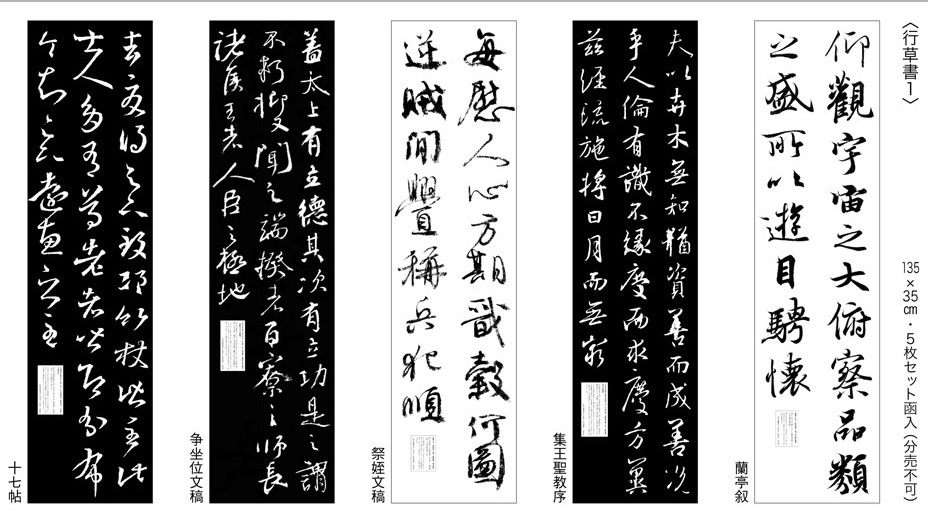 〈行草書1〉
135×35㎝・5枚セット函入(分売不可)
仰觀宇宙之大俯察品類
之盛所以遊目騁懷
蘭亭叙
夫以卉木無知猶資善而成善况
乎人倫有識不緣慶而求慶方冀
茲經流施將日月而無窮
集王聖教序
每慰人心方期戩穀何圖
逆賊間舋稱兵犯順
祭姪文稿
蓋太上有立德其次有立功是之謂
不朽抑又聞之端揆者百寮之師長
諸侯王者人臣之極地
争坐位文稿
去夏得足下致邛竹杖皆至此
士人多有尊老者皆即分布
令知足下遠惠之至
十七帖